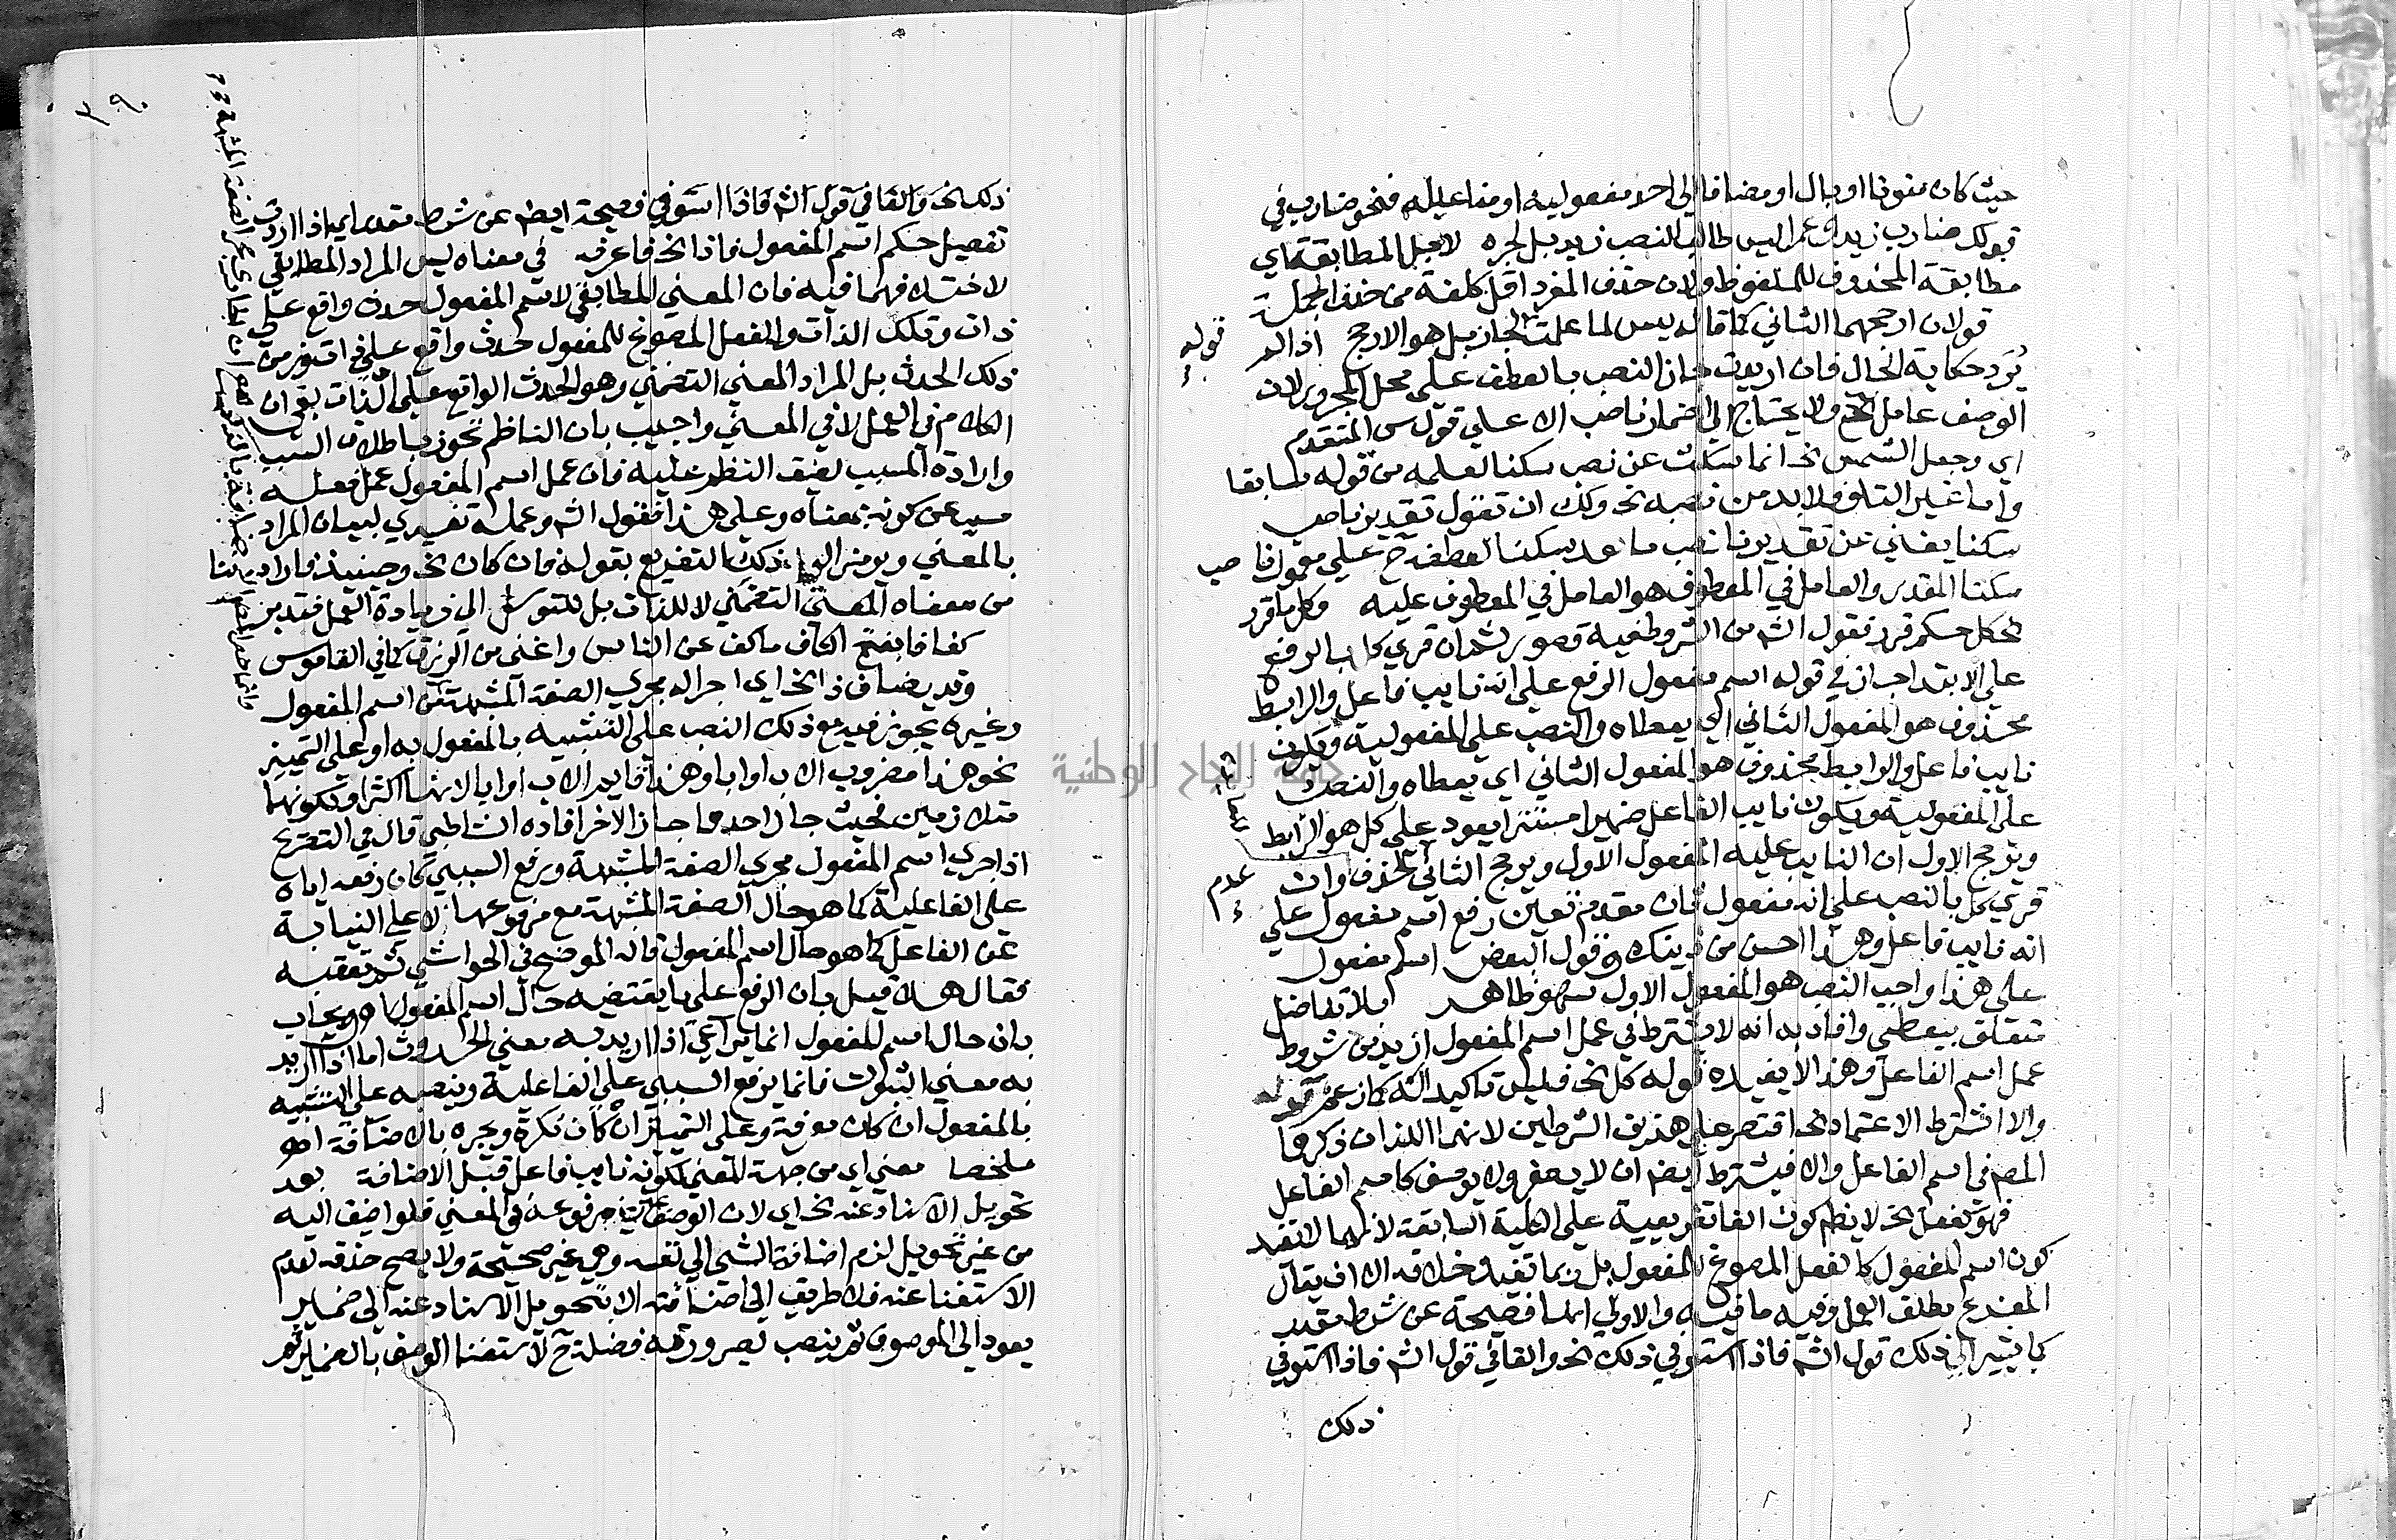 حيث كان منونا او بال او مضافا الى احد مفعوليه او مفاعيله فنحو ضارب في
قولك ضارب زيد وعمرا ليس طالبا لنصب زيد بل لجره لاجل المطابقة اي
مطابقة المحذوف للملفوظ ولان حذف المفرد اقل كلفة من حذف الجملة
قولان ارجحهما الثاني كما قاله يس لما علمت الجاز بل هو الارجح اذا لم
قوله
يُرد حكاية الحال فان اريدت جاز النصب بالعطف على محل المجرور لان
الوصف عامل ح ولا يحتاج الى اضمار ناصب الا على قول س المتقدم
اي وجعل الشمس الخ انما سكت عن نصب سكنا لعلمه من قوله سابقا
واما غير التلو فلا بد من نصبه الخ ولك ان تقول تقدير ناصب
سكنا يغني عن تقدير ناصب ما بعد سكنا لعطفه ح على معمول ناصب
سكنا المقدر والعامل في المعطوف هو العامل في المعطوف عليه وكل ما قرر
اي كل حكم قرر فقول الش من الشروط فيه قصور نشأ ان قري كل بالرفع
على الابتدا جاز في قوله اسم مفعول الرفع على انه نايب فاعل والرابط
محذوف هو المفعول الثاني اي يعطاه والنصب على المفعولية ويكون
نايب فاعل والرابط محذوف هو المفعول الثاني اي يعطاه والنصب
على المفعولية ويكون نايب الفاعل ضميرا مستترا يعود على كل هو الرابط
ويرجح الاول ان النايب عليه المفعول الاول ويرجح الثاني عدم الحذف وان
عدم
قري كل بالنصب على انه مفعول ثان مقدم تعين رفع اسم مفعول على
انه نايب فاعل وهذا احسن من ذينك وقول البعض اسم مفعول
على هذا واجب النصب هو المفعول الاول سهو ظاهر بلا تفاضل
متعلق بيعطى وافاد به انه لا يشترط في عمل اسم المفعول ازيد من شروط
عمل اسم الفاعل وهذا لا يفيده قوله كل الخ فليس تاكيدا له كما زعم
والا اشترط الاعتماد الخ اقتصر على هذين الشرطين لانهما اللذان ذكرهما
المص في اسم الفاعل والا فيشترط ايضا ان لا يصغر ولا يوصف كاسم الفاعل
فهو كفعل الخ لا يظهر كون الفا تفريعية على الكلية السابقة لانها لا تفيد
كون اسم المفعول كالفعل المصوغ للمفعول بل ربما تفيد خلافه الا ان يقال
المفرع مطلق العمل وفيه ما فيه والاولى انها فصيحة عن شرط مقدر
كما يشير الى ذلك قول الش فاذا استوفى ذلك الخ والفا في قول الش فاذا استوفى
ذلك
ذلك الخ والفا في قول الش فاذا استوفى فصيحة ايضا عن شرط مقدر اي اذا اردت
تفصيل حكم اسم المفعول فاذا الخ فاعرفه في معناه ليس المراد المطابقي
لاختلافهما فيه فان المعنى المطابقي لاسم المفعول حدث واقع على
ذات وتلك الذات والفعل المصوغ للمفعول حدث واقع على ذات وزمن
ذلك الحدث بل المراد المعنى التضمني وهو الحدث الواقع على الذات بقي ان
الكلام في العمل لا في المعنى واجيب بان الناظم تجوز باطلاق السبب
وارادة المسبب لضيق النظم عليه فان عمل اسم المفعول عمل فعله
مسبب عن كونه بمعناه وعلى هذا فقول الش وعمله تفسيري لبيان المراد
بالمعنى ويومئ الى ذلك التفريع بقوله فان كان الخ وحينئذ فالمراد
من معناه المعنى التضمني لا للذات بل للتوسل الى زيادة العمل فتدبر
كفافا بفتح الكاف ما كف عن الناس واغنى من الرزق كما في القاموس
وقد يضاف ذا الخ اي اجرا له مجرى الصفة المشبهة من اسم المفعول
وغيره يجوز فيه مع ذلك النصب على التشبيه بالمفعول به او على التمييز
نحو هذا مضروب الاب او ابا وهذا قايم الاب او ابا لانهما اكثر او لكونهما
متلازمين فحيث جاز احدهما جاز الاخر افاده الشاطبي قال في التصريح
اذا جرى اسم المفعول مجرى الصفة المشبهة ورفع السببي كان رفعه اياه
على الفاعلية كما هو حال الصفة المشبهة مع مرفوعها لا على النيابة
عن الفاعل كما هو حال اسم المفعول قاله الموضح في الحواشي ثم تعقبه
فقال هلا قيل بان الرفع على ما يقتضيه حال اسم المفعول ويجاب
بان حال اسم المفعول انما يراعى اذا اريد به معنى الحدوث اما اذا اريد
به معنى الثبوت فانما يرفع السببي على الفاعلية وينصبه على التشبيه
بالمفعول ان كان معرفة وعلى التمييز ان كان نكرة ويجره بالاضافة اهـ
ملخصا معنى اي من جهة المعنى لكونه نايب فاعل قبل الاضافة بعد
تحويل الاسناد عنه الخ اي لان الوصف عين مرفوعه في المعنى فلو اضيف اليه
من غير تحويل لزم اضافة الشي الى نفسه وهي غير صحيحة ولا يصح حذفه لعدم
الاستغنا عنه فلا طريق الى اضافته الا بتحويل الاسناد عنه الى ضمير
يعود الى الموصوف ثم ينصب لصيرورته فضلة ح لاستغنا الوصف بالضمير ثم